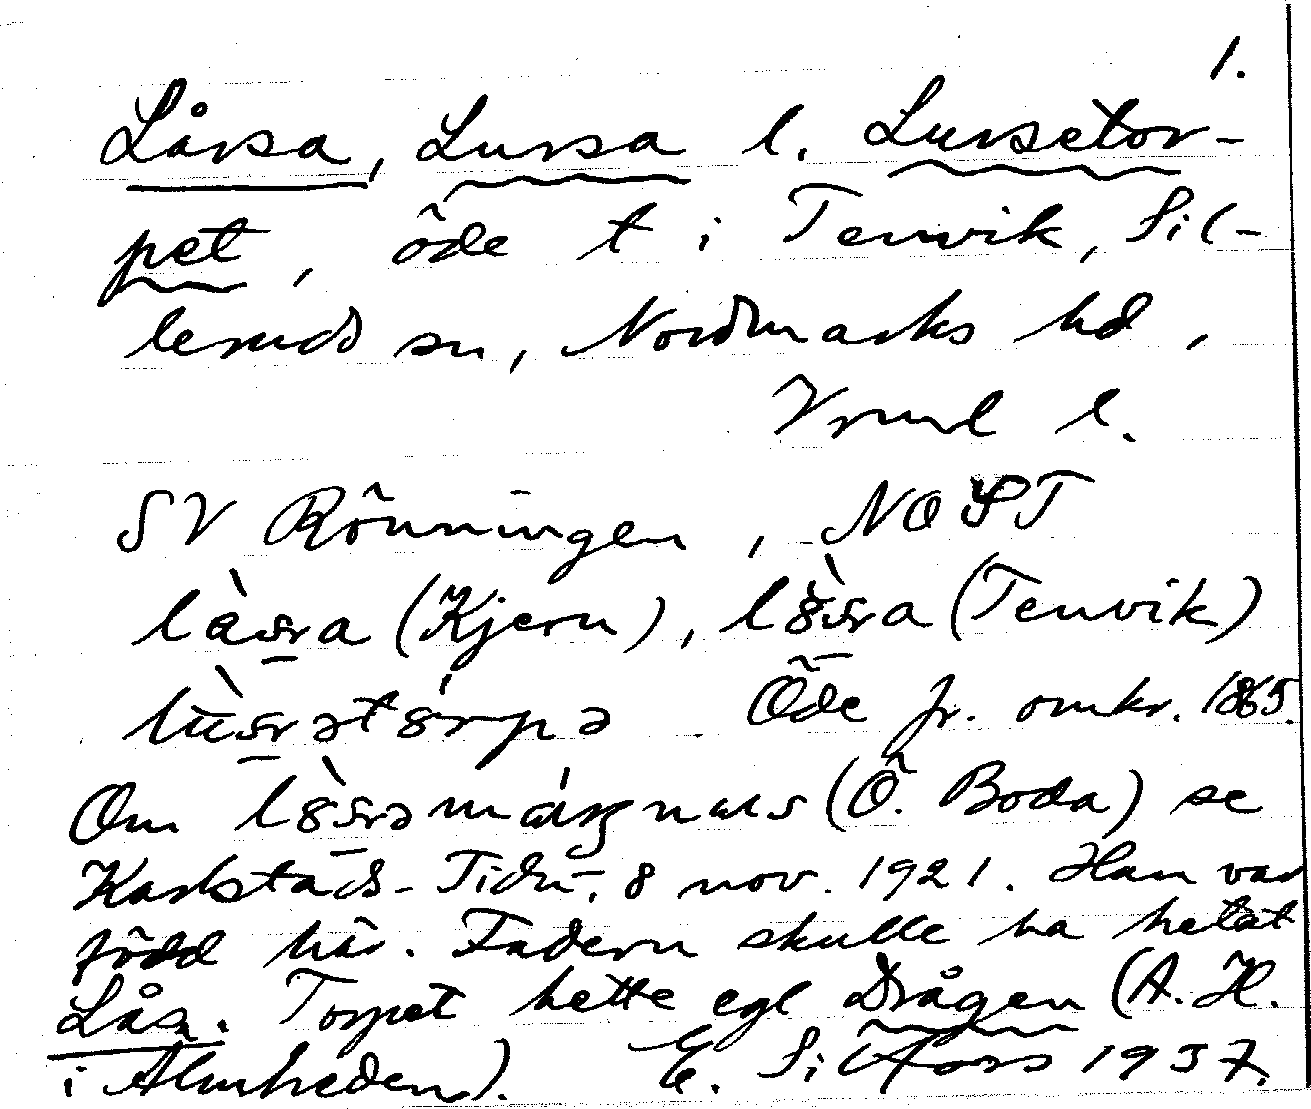 1.
Lårsa, Lursa l. Lursetor-
pet, öde t i Tenvik, Sil-
leruds sn, Nordmarks hd,
Vrml l.
SV Rönningen, NO ST
(Kjern), (Tenvik)
Öde fr. omkr. 1865.
Om (Ö. Boda) se
Karlstads-Tidn. 8 nov. 1921. Han var
född här. Fadern skulle ha hetat
Lås. Torpet hette egl Drågen (A. H.
i Älmheden). E. Sillfors 1937.